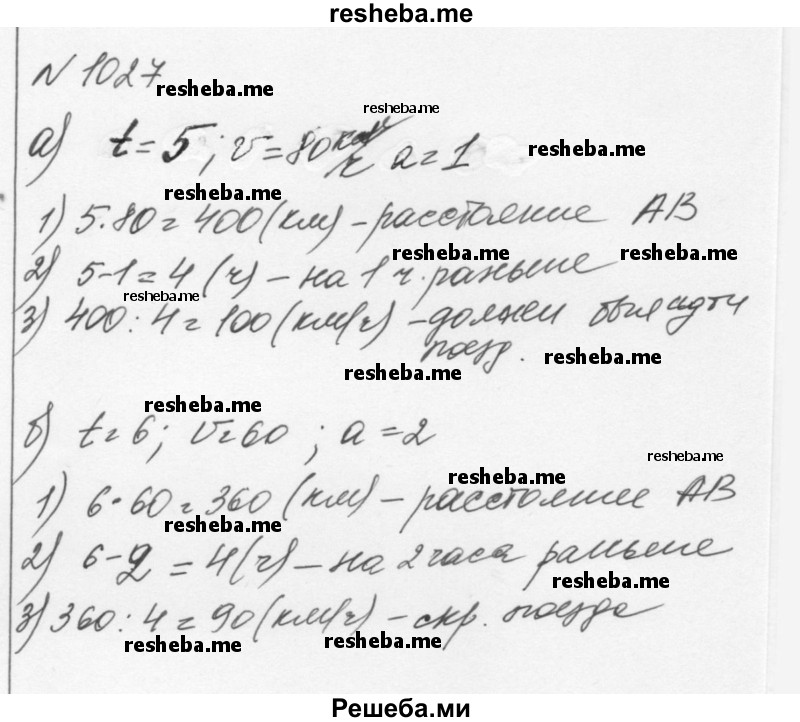 resheba.me
N 1027 resheba.me
resheba.me
а) t = 5; v = 80 км/ч a = 1 resheba.me
resheba.me
1) 5·80 = 400 (км) – расстояние AB
resheba.me resheba.me
2) 5-1 = 4 (ч) – на 1 ч. раньше
resheba.me
3) 400 : 4 = 100 (км/ч) – должен был идти
поезд. resheba.me
resheba.me
resheba.me
б) t = 6; v = 60; a = 2
resheba.me
resheba.me
1) 6·60 = 360 (км) – расстояние AB
resheba.me
2) 6-2 = 4 (ч) – на 2 часа раньше
resheba.me
3) 360 : 4 = 90 (км/ч) – скр. поезда
resheba.me resheba.me
Решеба.ми